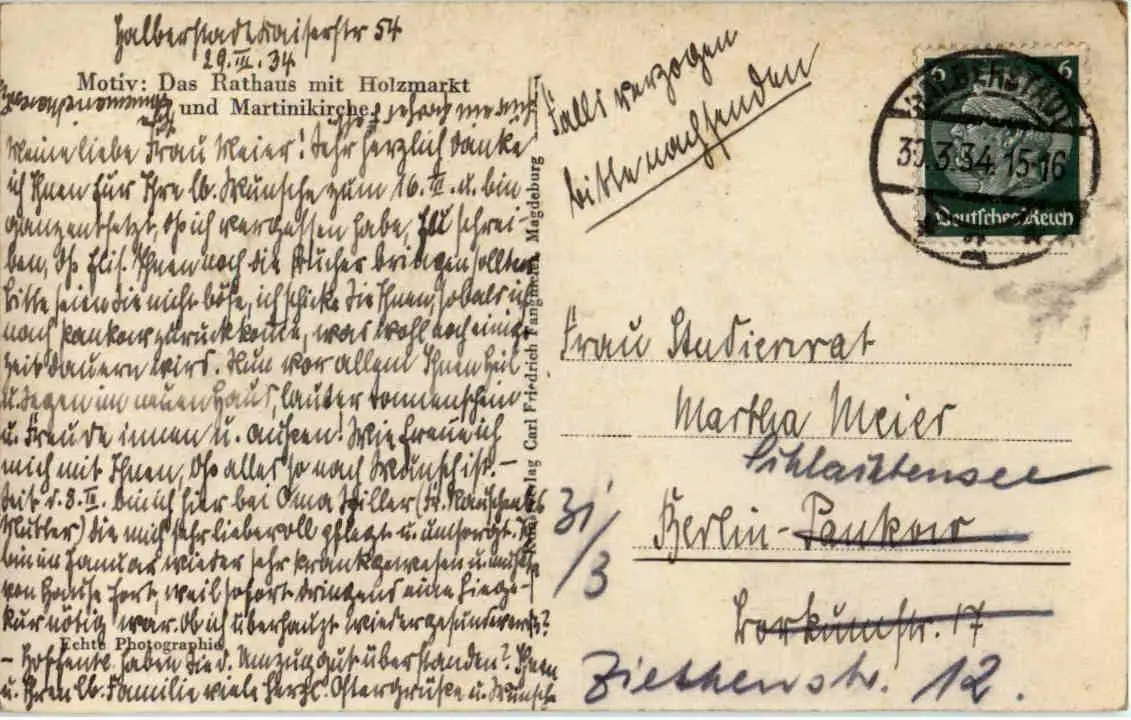 Halberstadt Kaiserstr 54
29. III. 34
Motiv: Das Rathaus mit Holzmarkt
und Martinikirche
Meine liebe Frau Meier! Sehr herzlich danke
ich Ihnen für Ihre lb. Wünsche zum 16. III. u. bin
ganz entsetzt, daß ich vergessen habe, zu schrei-
ben, daß Elis. Ihnen noch die Bücher bringen sollte.
Bitte seien Sie nicht böse, ich schicke sie Ihnen, sobald ich
nach Pankow zurückkomme, was wohl noch einige
Zeit dauern wird. Nun vor allem Ihnen Heil
u. Segen im neuen Haus, lauter Sonnenschein
u. Freude innen u. außen! Wie freue ich
mich mit Ihnen, daß alles so nach Wunsch ist. –
Seit d. 8. II. bin ich hier bei Oma
Mutter) die mich sehr liebevoll pflegt u. umsorgt. Ich
bin im Januar wieder sehr krank gewesen u. mußte
von Hause fort, weil sofort dringend eine Liege-
kur nötig war. Ob ich überhaupt wieder gesund werde?
Echte Photographie
– Hoffentl. haben Sie d. Umzug gut überstanden? Ihnen
u. Ihren lb. Familie viele herzl. Ostergrüße u. Wünsche
Verlag Carl Friedrich Fangmeier, Magdeburg
Falls verzogen
bitte nachsenden
6 6
HALBERSTADT
30.3.34. 15-16
Deutsches Reich
Frau Studienrat
Martha Meier
Schlachtensee
Berlin-Pankow
31/3
Borkumstr. 17
Ziethenstr. 12.